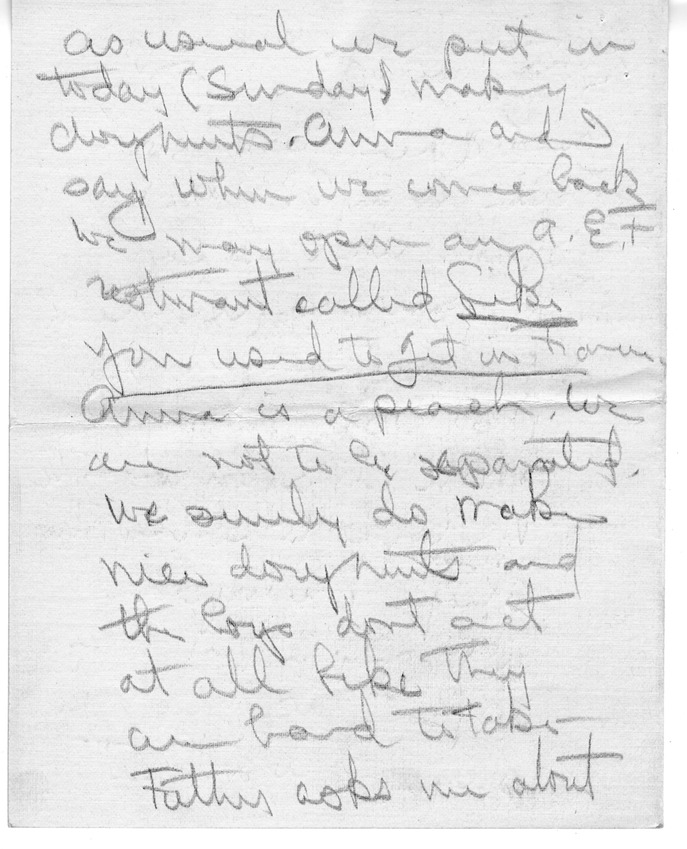 as usual we put in
today (Sunday) making
doughnuts. Anna and I
say when we come back
we may open an A.E.F
resturant called Like
you used to get in France.
Anna is a peach. We
are not to be separated.
We surely do make
nice doughnuts and
the boys don't act
at all like they
are hard to take
Father asks me about